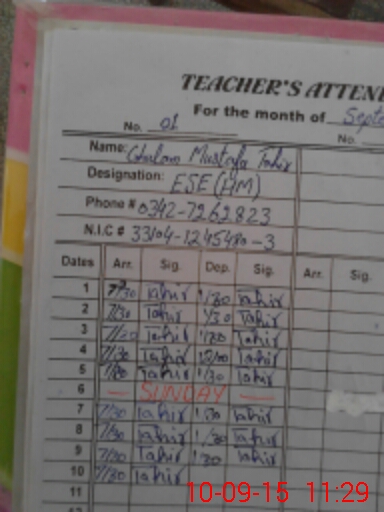 TEACHER'S ATTEN
For the month of Septe
No. 01 No.
Name: Ghulam Mustafa Tahir
Designation: ESE (HM)
Phone # 0342-7262823
N.I.C # 33104-1245480-3
Dates Arr. Sig. Dep. Sig. Arr. Sig.
1 7/30 Tahir 1/30 Tahir
2 7/30 Tahir 1/30 Tahir
3 Tahir Tahir
4 7/30 Tahir 12/00 Tahir
5 Tahir 1/30 Tahir
6 — SUNDAY —
7 7/30 Tahir Tahir
8 7/30 Tahir 1/30 Tahir
9 7/30 Tahir 1/30 Tahir
10 7/30 Tahir
11
10-09-15 11:29